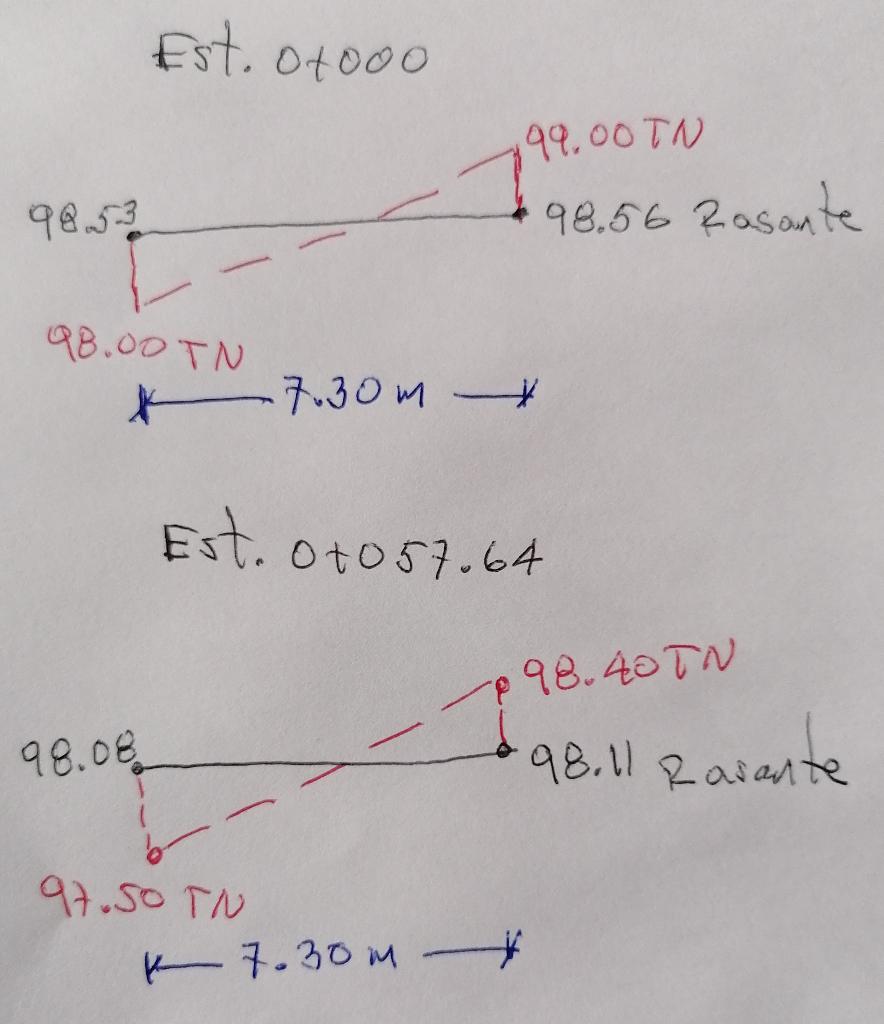 Est. 0+000
99.00 TN
98.53
98.56 Rasante
98.00 TN
7.30 m
Est. 0+057.64
98.40 TN
98.08
98.11 Rasante
97.50 TN
7.30 m